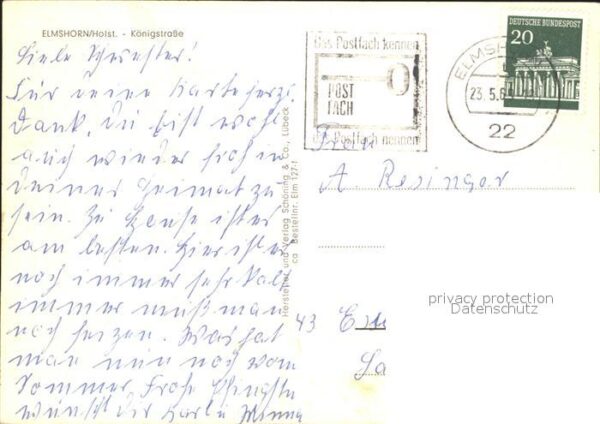 ELMSHORN/Holst. - Königstraße
Liebe Schwester!
Für deine Karte herzl.
Dank, Du bist wohl
auch wieder froh in
deiner Heimat zu
sein. Zu Hause ist es
am besten. Hier ist es
noch immer sehr kalt
immer muß man
noch heizen. Was hat
man nun noch vom
Sommer. Frohe Pfingsten
wünscht dir Karla Minna
Hersteller und Verlag Schöning & Co., Lübeck
Bestellnr. Elm 127 f
Das Postfach kennen
POST
FACH
Postfach nennen
ELMS
23.5.6
22
DEUTSCHE BUNDESPOST
20
Frau
A Resinger
43
privacy protection
Datenschutz